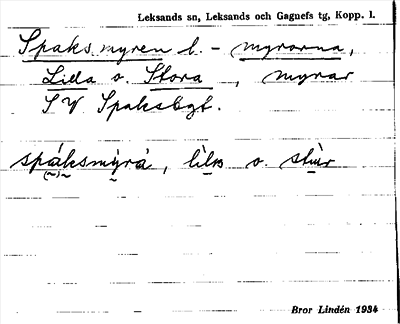 Leksands sn, Leksands och Gagnefs tg, Kopp. l.
Spaksmyren l. - myrarna,
Lilla o. Stora, myrar
S V Spaksbgt.
spáksmýrà, lìls o. stùr
Bror Lindén 1934